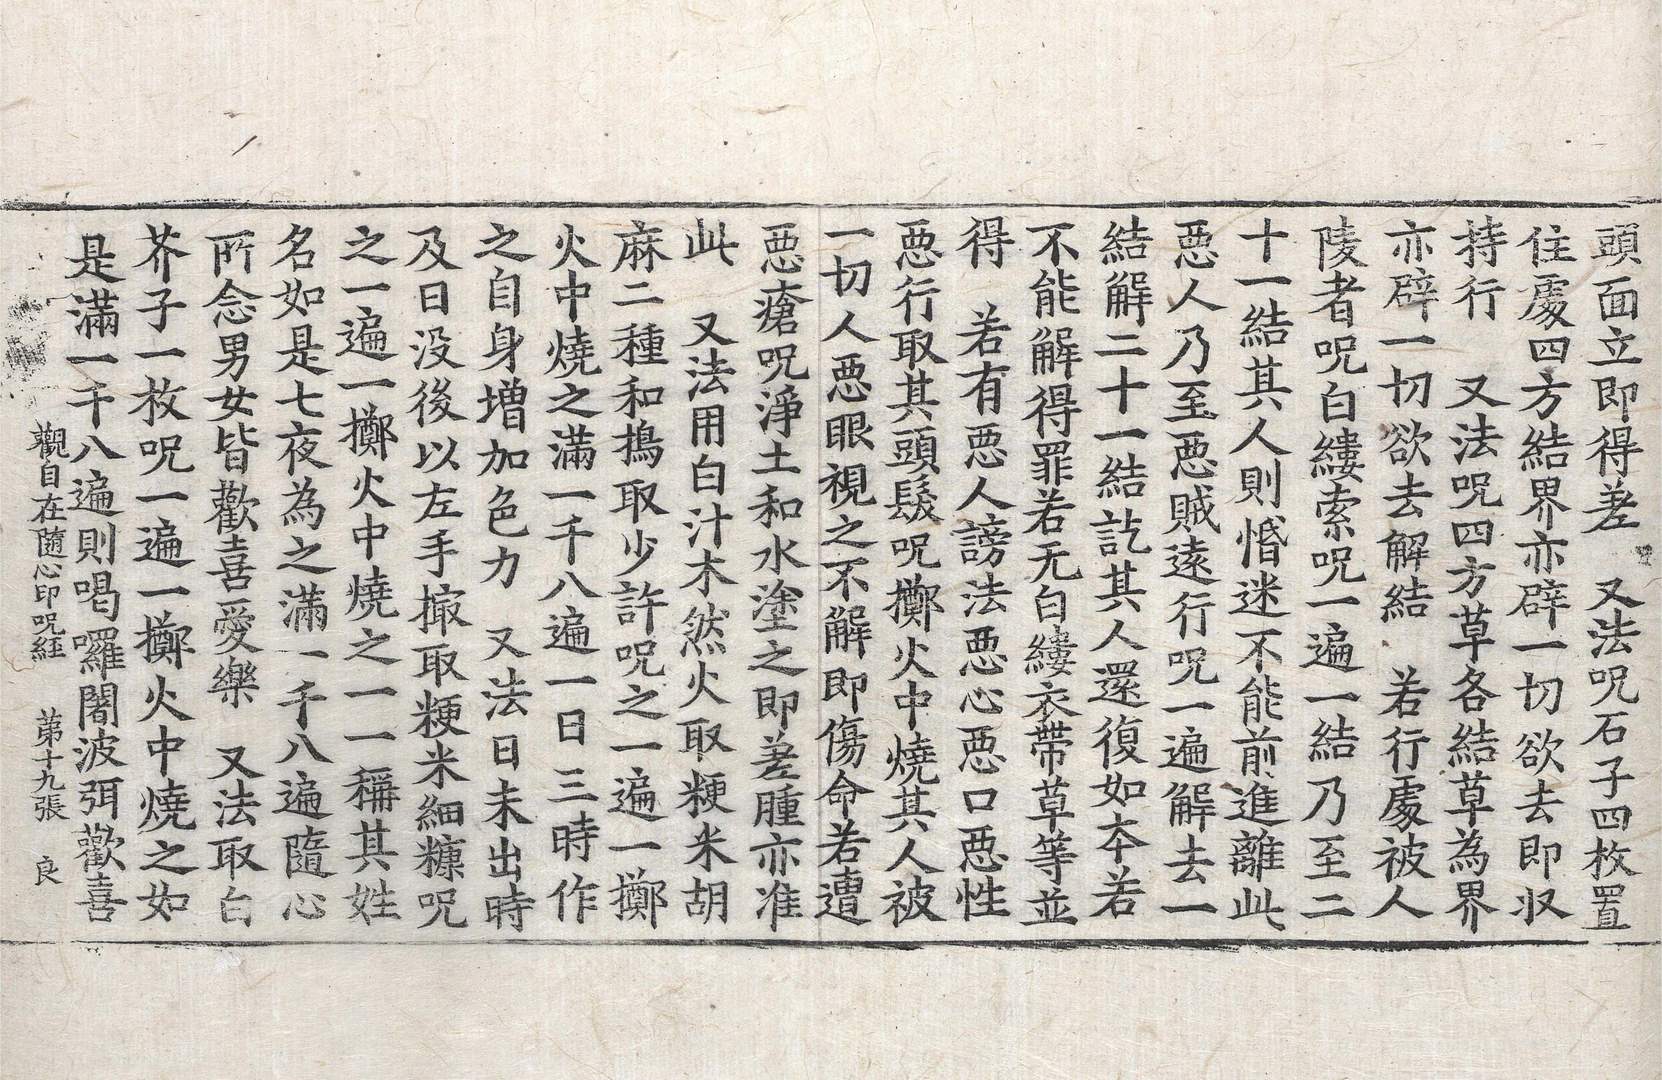 頭面立即得差　又法呪石子四枚置
住處四方結界亦辟一切欲去即収
持行　又法呪四方草各結草為界
亦辟一切欲去解結　若行處被人
陵者呪白縷索呪一遍一結乃至二
十一結其人則惛迷不能前進離此
惡人乃至惡賊遠行呪一遍解去一
結解二十一結訖其人還復如夲若
不能解得罪若无白縷衣帶草等並
得　若有惡人謗法惡心惡口惡性
惡行取其頭髮呪擲火中燒其人被
一切人惡眼視之不解即傷命若遭
惡瘡呪淨土和水塗之即差腫亦准
此　又法用白汁木然火取粳米胡
麻二種和擣取少許呪之一遍一擲
火中燒之滿一千八遍一日三時作
之自身增加色力　又法日未出時
及日没後以左手撮取粳米細糠呪
之一遍一擲火中燒之一一稱其姓
名如是七夜為之滿一千八遍隨心
所念男女皆歡喜愛樂　又法取白
芥子一枚呪一遍一擲火中燒之如
是滿一千八遍則喝囉闍波弭歡喜
觀自在隨心印呪経　第十九張　良